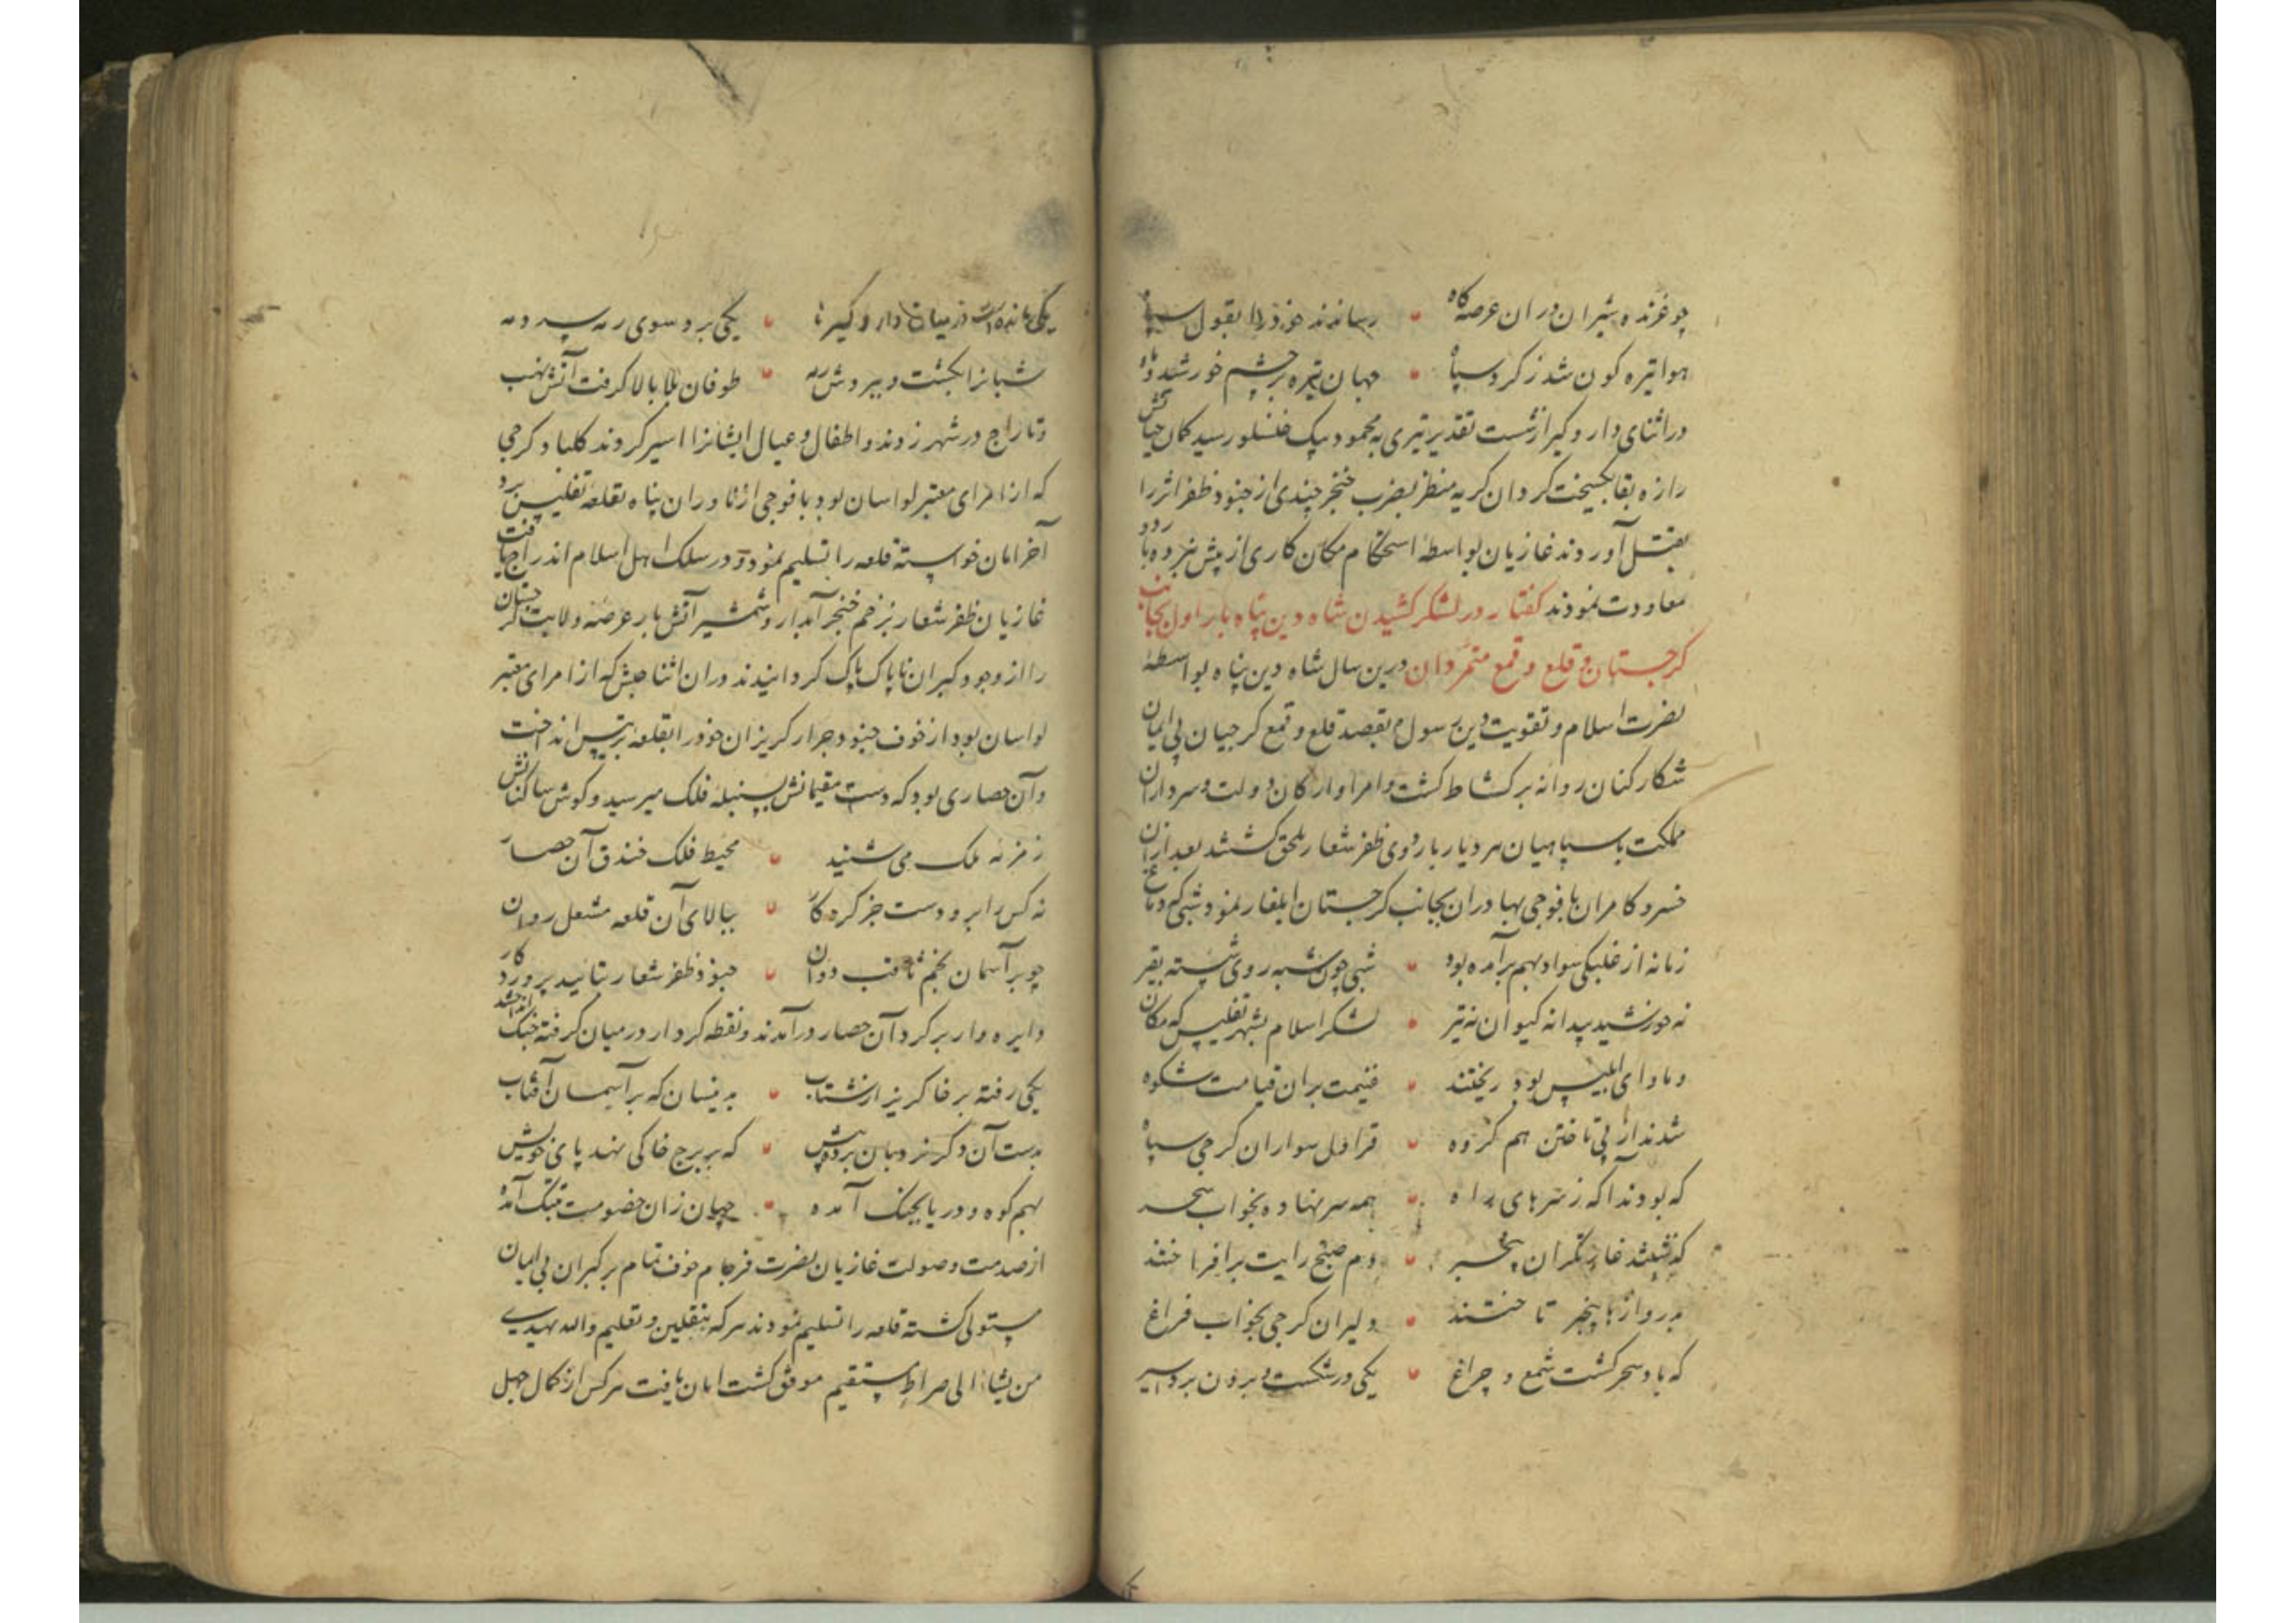 چو غرنده شیران دران عرصه گاه رساندند خود را بقول سپاه
هوا تیره کون شد ز کرد سپاه جهان تیره بر چشم خورشید و ماه
در اثنای دار و کیر از شست تقدیر تیری به محمود بیک رسید کمان حیاتش
را زه بقا بکسیخت کردان کریه منظر بضرب خنجر چندی از جنود ظفر اثر را
بقتل آوردند غازیان بواسطه استحکام مکان کاری از پیش نبرده باردو
معاودت نمودند کفتار در لشکر کشیدن شاه دین پناه بار اول بجانب
کرجستان و قلع و قمع متمردان درین سال شاه دین پناه بواسطه
نصرت اسلام و تقویت دین رسول بقصد قلع و قمع کرجیان بی ایمان
شکار کنان روانه بر کشاط کشت و امرا و ارکان دولت و سرداران
مملکت با سپاهیان هر دیار باردوی ظفر شعار ملحق کشتند بعد ازان
خسرو کامران با فوجی بهادران بجانب کرجستان ایلغار نمود شبی که دماغ
زمانه از غلبکی سواد بهم برآمده بود شبی چون شبه روی شسته بقیر
نه خورشید پیدا نه کیوان نه تیر لشکر اسلام بشهر تفلیس که مکان
و ماوای ابلیس بود ریختند غنیمت بران قیامت شکوه
شدند از پی تاختن هم کروه قراول سواران کرجی سپاه
که بودند اکه ز سرهای راه همه سر نهاده بخواب سحر
که غارتکران بیخبر دم صبح رایت برافراختند
به دروازها بیخبر تاختند دلیران کرجی بخواب فراغ
که باد سحر کشت شمع و چراغ یکی در شکست و برون برد اسیر
یکی مانده در میان دار و کیر یکی برد سوی رمه
شبانرا بکشت و ببردش رمه طوفان بلا بالا کرفت آتش نهب
و تاراج در شهر زدند و اطفال و عیال ایشانرا اسیر کردند کلباد کرجی
که از امرای معتبر لواسان بود با فوجی ازناوران پناه بقلعه تفلیس برد
آخر امان خواسته قلعه را تسلیم نمود و در سلک اهل اسلام اندراج یافت
غازیان ظفر شعار بزخم خنجر آبدار و شمشیر آتش بار عرصه ولایت کرجستان
را از وجود کبران ناپاک پاک کردانیدند دران اثنا حبش که از امرای معتبر
لواسان بود از خوف جنود جرار کریزان خود را بقلعه برتیس انداخت
و آن حصاری بود که دست مقیمانش بسنبله فلک میرسید و کوش ساکنانش
زمزمه ملک می شنید محیط فلک خندق آن حصار
نه کس را برو دست جز کردکار ببالای آن قلعه مشعل روان
چو بر آسمان نجم ثاقب دوان جنود ظفر شعار بتائید پروردکار
دایره وار بر کرد آن حصار درآمدند و نقطه کردار در میان کرفته جنک انداختند
یکی رفته بر خاکریز از شتاب بدینسان که بر آسمان آفتاب
بدست آن دکر نردبان برده پیش که بر برج خاکی نهد پای خویش
بهم کوه و دریا بجنک آمده جهان زان خصومت بتنک آمده
از صدمت و صولت غازیان نصرت فرجام خوف تمام بر کبران بی ایمان
مستولی کشته قلعه را تسلیم نمودند هر که بتلقین و تعلیم والله یهدی
من یشاء الی صراط مستقیم موفق کشت امان یافت هر کس از کمال جهل